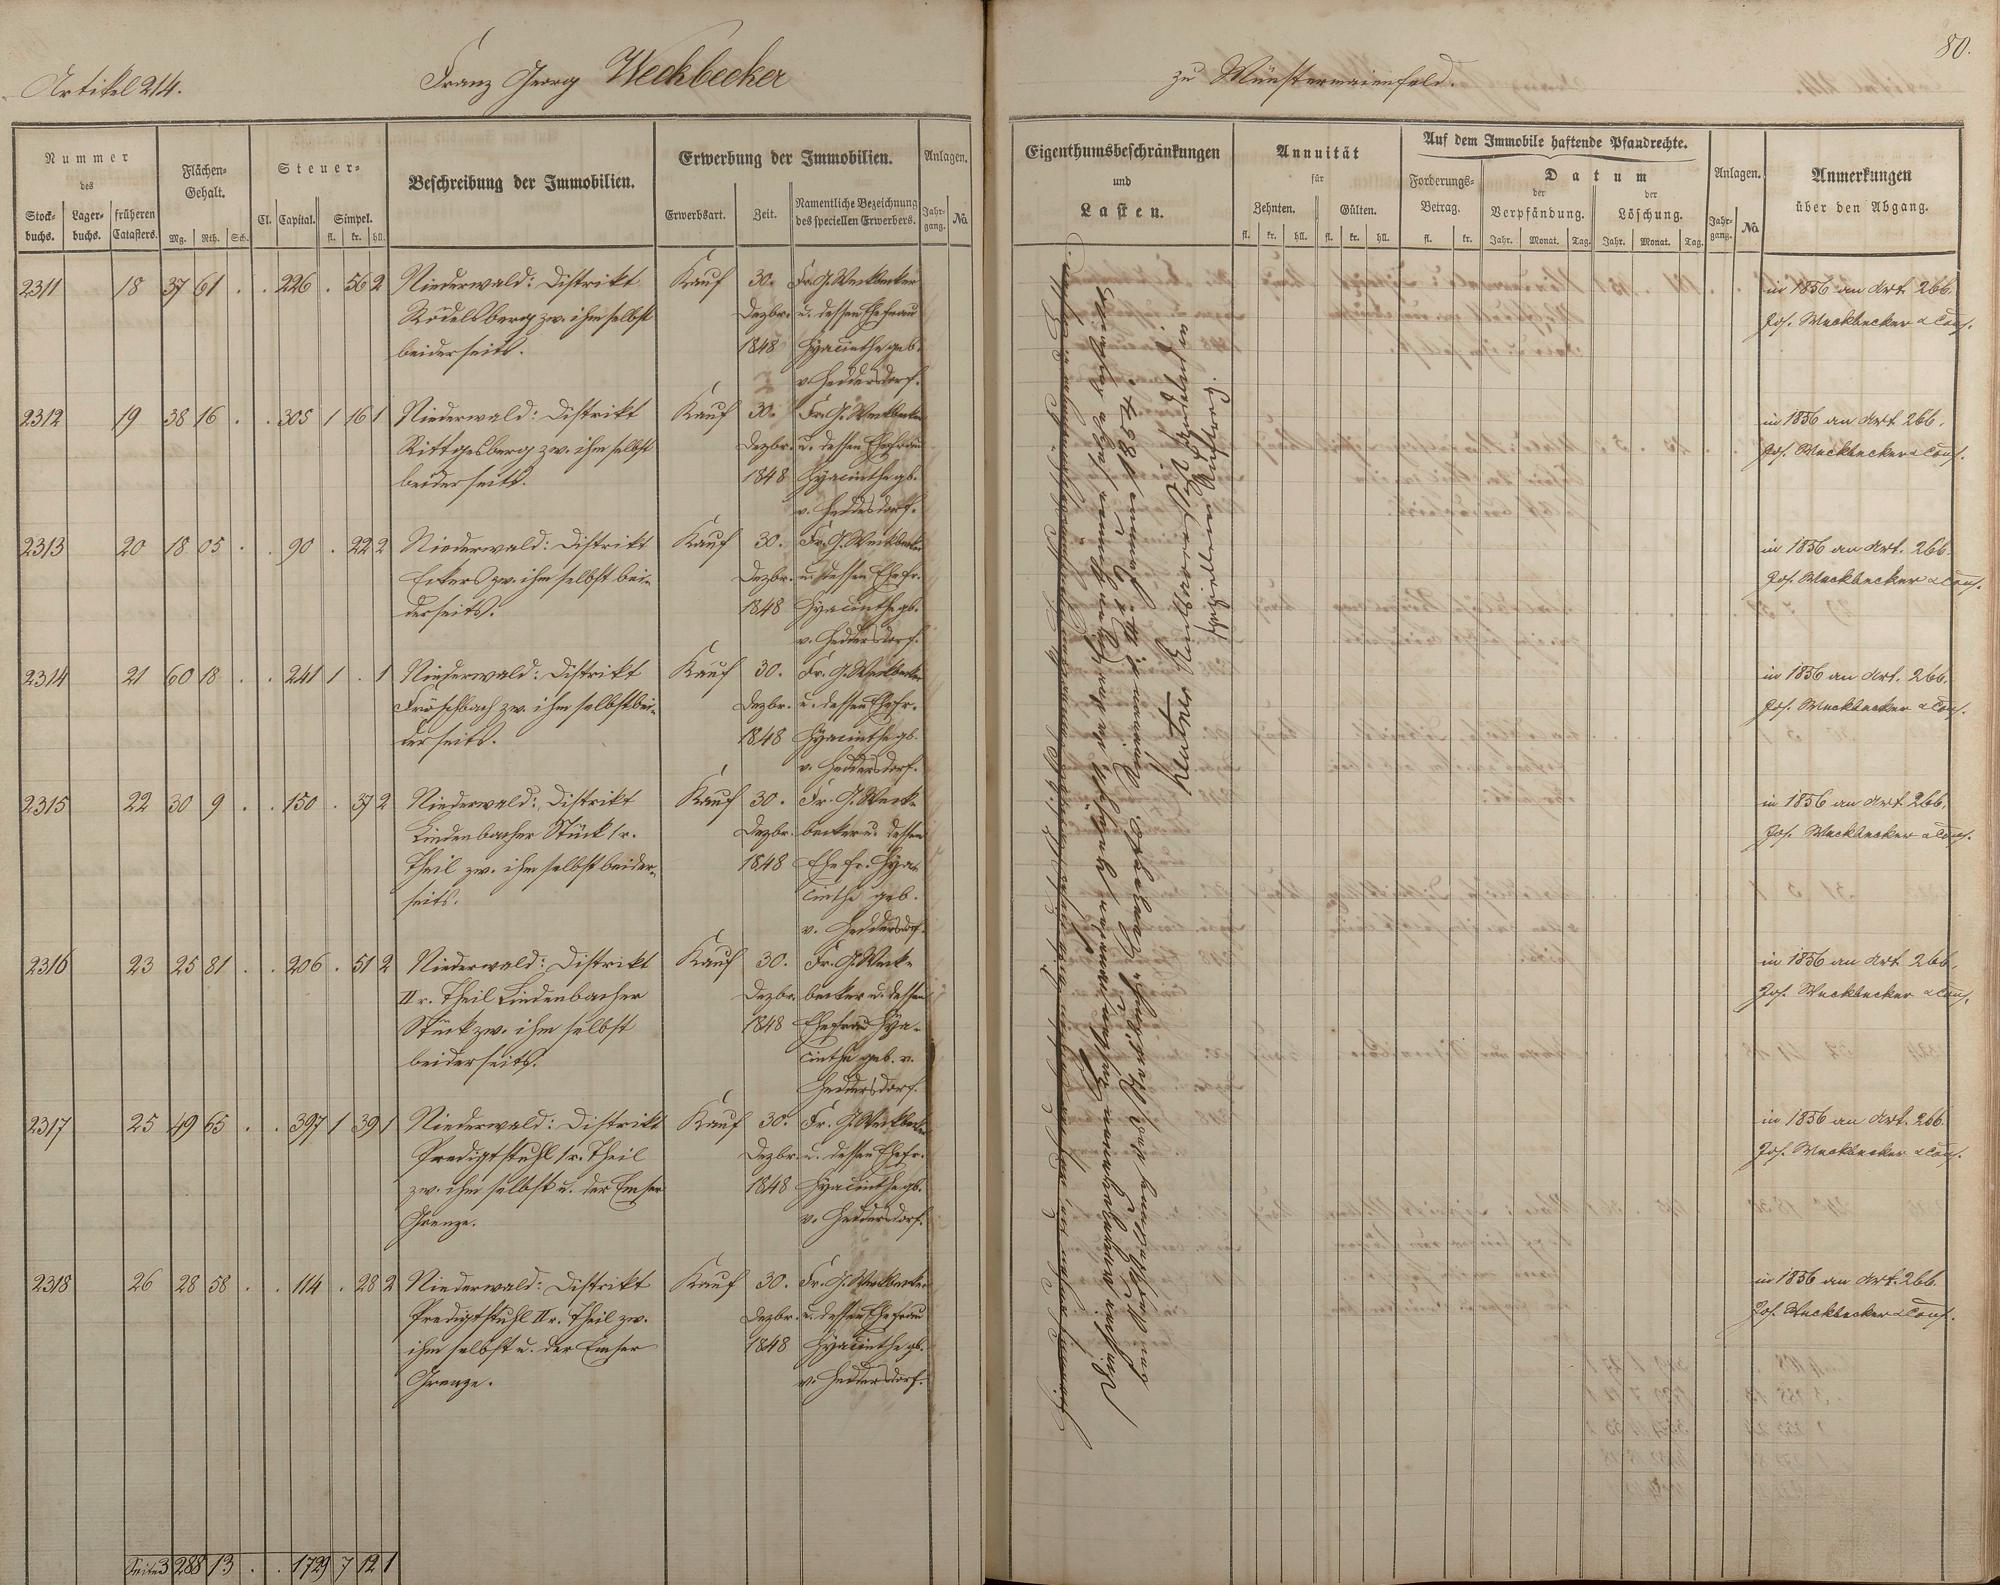 Artikel 214.
Franz Georg Weckbecker
zu Münstermaienfeld.
80.
Nummer
des
Stock-
buchs.
Lager-
buchs.
früheren
Catasters.
Flächen-
Gehalt.
Mg. Rth. Sch.
Steuer-
Cl. Capital. Simpel.
fl. kr. hll.
Beschreibung der Immobilien.
Erwerbung der Immobilien.
Erwerbsart.
Zeit.
Namentliche Bezeichnung
des speciellen Erwerbers.
Anlagen.
Jahr-
gang.
No
Eigenthumsbeschränkungen
und
Lasten.
Annuität
für
Zehnten. Gülten.
fl. kr. hll. fl. kr. hll.
Auf dem Immobile haftende Pfandrechte.
Forderungs-
Betrag.
fl. kr.
Datum
der
Verpfändung.
der
Löschung.
Jahr. Monat. Tag. Jahr. Monat. Tag.
Anlagen.
Jahr-
gang.
No
Anmerkungen
über den Abgang.
2311 18 37 61 . . 226 . 56 2 Niederwald: Distrikt Kauf 30. Fr. G. Weckbecker in 1856 an Art. 266.
Rödelsberg zw. ihm selbst Dezbr. u. dessen Ehefrau Jos. Weckbecker & Cons.
beiderseits. 1848 Hyacinthe geb.
v. Heddersdorf.
2312 19 38 16 . . 305 1 16 1 Niederwald: Distrikt Kauf 30. Fr. G. Weckbecker in 1856 an Art. 266.
Rittgesberg zw. ihm selbst Dezbr. u. dessen Ehefrau Jos. Weckbecker & Cons.
beiderseits. 1848 Hyacinthe gb.
v. Heddersdorf.
2313 20 18 05 . . 90 . 22 2 Niederwald: Distrikt Kauf 30. Fr. G. Weckbecker in 1856 an Art. 266.
Eckers zw. ihm selbst bei- Dezbr. u. dessen Ehefr. Jos. Weckbecker & Cons.
derseits. 1848 Hyacinthe gb.
v. Heddersdorf.
2314 21 60 18 . . 241 1 . 1 Niederwald: Distrikt Kauf 30. Fr. G. Weckbecker in 1856 an Art. 266.
Fröschbach zw. ihm selbst bei- Dezbr. u. dessen Ehefr. Jos. Weckbecker & Cons.
derseits. 1848 Hyacinthe gb.
v. Heddersdorf.
2315 22 30 9 . . 150 . 37 2 Niederwald: Distrikt Kauf 30. Fr. G. Weck- in 1856 an Art. 266.
Lindenbacher Stück 1r. Dezbr. becker u. dessen Jos. Weckbecker & Cons.
Theil zw. ihm selbst beider- 1848 Ehefr. Hya-
seits. cinthe geb.
v. Heddersdorf.
2316 23 25 81 . . 206 . 51 2 Niederwald: Distrikt Kauf 30. Fr. G. Weck- in 1856 an Art. 266.
II r. Theil Lindenbacher Dezbr. becker u. dessen Jos. Weckbecker & Cons.
Stück zw. ihm selbst 1848 Ehefrau Hya-
beiderseits. cinthe geb. v.
Heddersdorf.
2317 25 49 65 . . 397 1 39 1 Niederwald: Distrikt Kauf 30. Fr. G. Weckbecker in 1856 an Art. 266.
Predigtstuhl 1r. Theil Dezbr. u. dessen Ehefr. Jos. Weckbecker & Cons.
zw. ihm selbst u. der Emser 1848 Hyacinthe gb.
Grenze. v. Heddersdorf.
2318 26 28 58 . . 114 . 28 2 Niederwald: Distrikt Kauf 30. Fr. G. Weckbecker in 1856 an Art. 266.
Predigtstuhl II r. Theil zw. Dezbr. u. dessen Ehefrau Jos. Weckbecker & Cons.
ihm selbst u. der Emser 1848 Hyacinthe gb.
Grenze. v. Heddersdorf.
Seite 3 288 13 . . 1729 7 12 1
speziellem Auftrag.